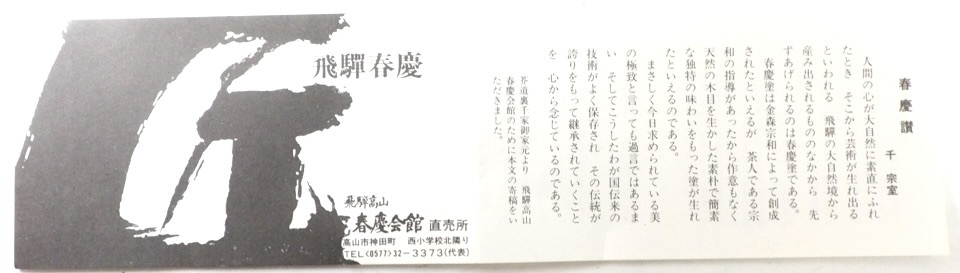 飛驒春慶
飛驒高山
春慶会館 直売所
高山市神田町 西小学校北隣り
TEL〈0577〉32-3373(代表)
春慶讃
千 宗室
人間の心が大自然に素直にふれ
たとき そこから芸術が生れ出る
といわれる 飛驒の大自然境から
産み出されるもののなかから 先
ずあげられるのは春慶塗である。
春慶塗は金森宗和によって創成
されたといえるが 茶人である宗
和の指導があったから作意もなく
天然の木目を生かした素朴で簡素
な独特の味わいをもった塗が生れ
たといえるのである。
まさしく今日求められている美
の極致と言っても過言ではあるま
い そしてこうしたわが国伝来の
技術がよく保存され その伝統が
誇りをもって継承されていくこと
を 心から念じているのである。
茶道裏千家御家元より 飛驒高山
春慶会館のために本文の寄稿をい
ただきました。